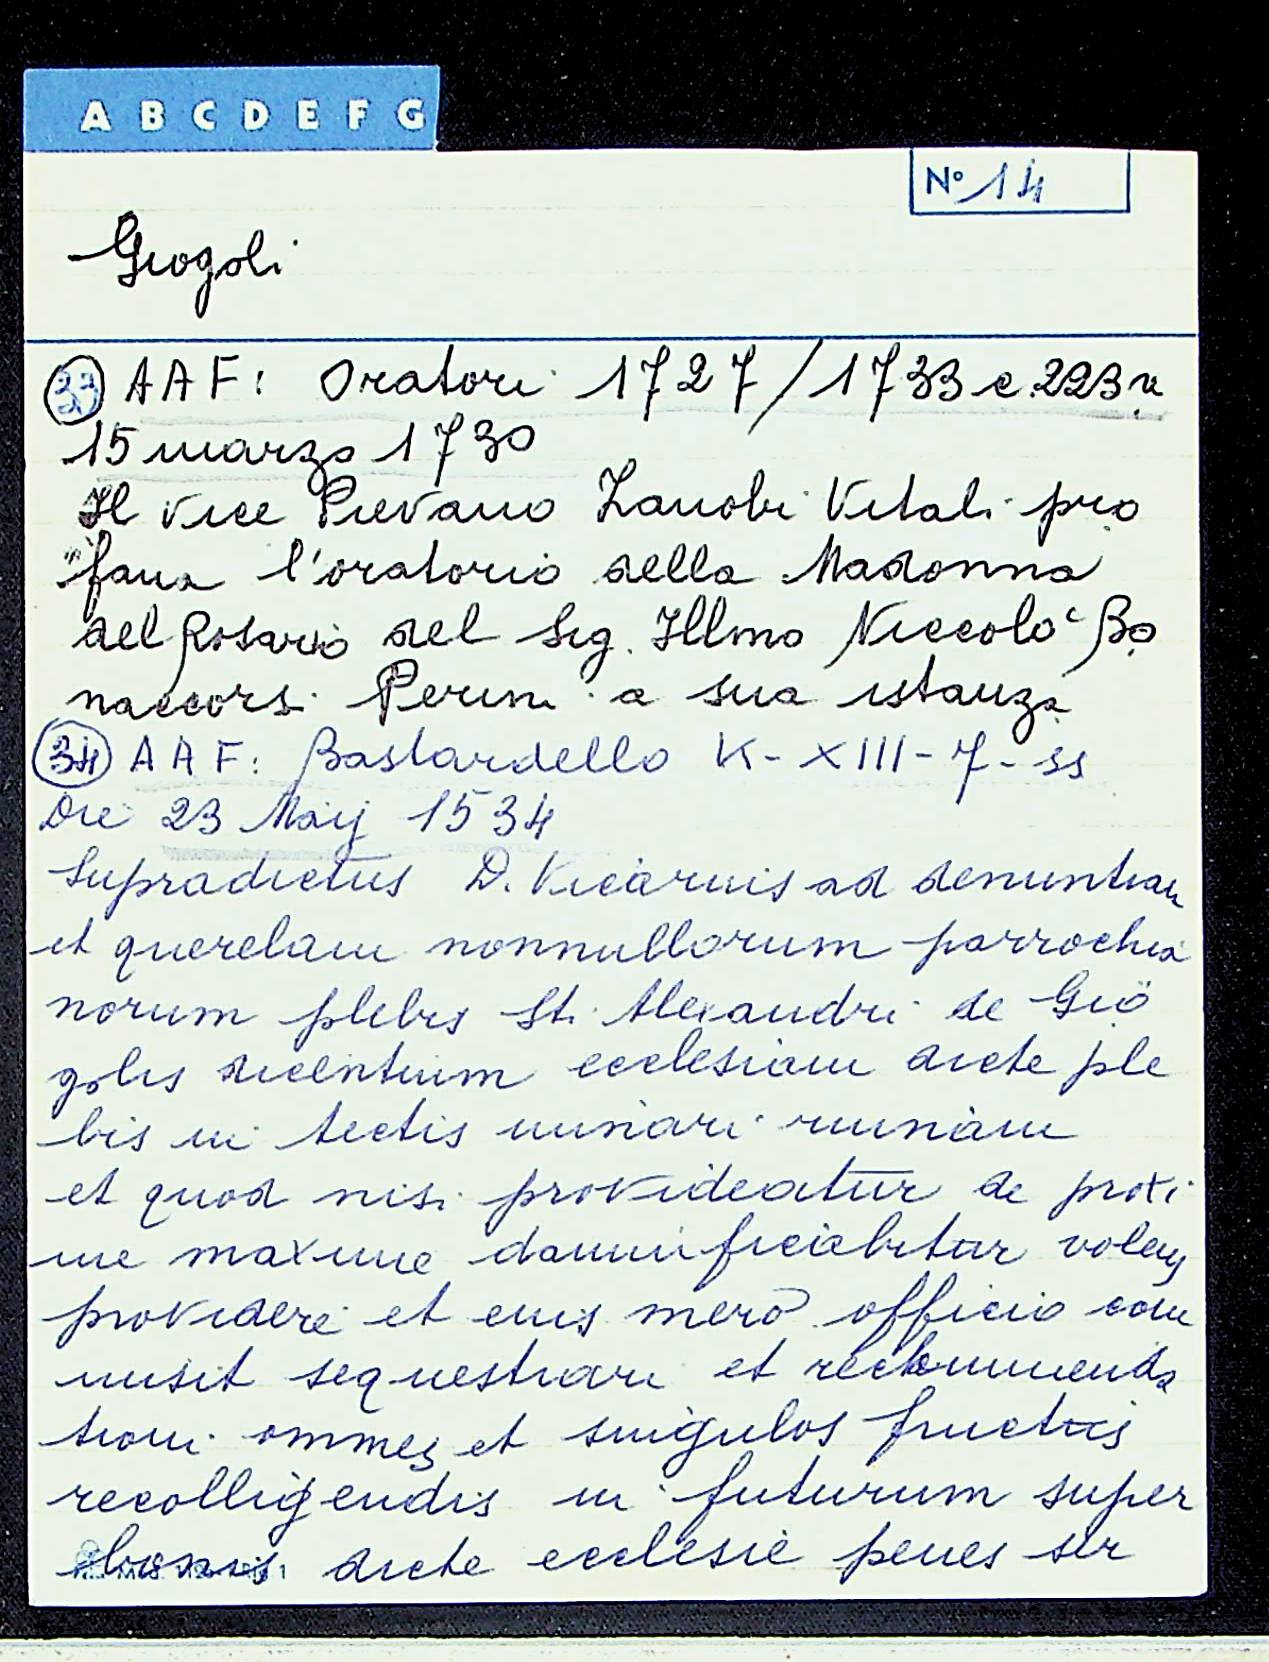 A B C D E F G
Nº 14
Giogoli
33 AAF: Oratori 1727/1733 c. 223 r
15 marzo 1730
Il vice Pievano Zanobi Vitali pro
fana l'oratorio della Madonna
del Rosario del Sig. Illmo Niccolò Bo
naccorsi Perini a sua istanza
34 AAF: Bastardello K-XIII-7-ss
Die 23 Maij 1534
Supradictus D. Vicarius ad denuntian
et querelam nonnullorum parrochia
norum plebis St. Alexandri de Gio
golis dicentium ecclesiam dicte ple
bis in tectis minari ruinam
et quod nisi provideatur de proxi
me maxime damnificiabitur volens
providere et eius mero officio com
misit sequestrari et recommenda
tioni ommes et singulos fructus
recolligendis in futurum super
bonis dicte ecclesie penes ser